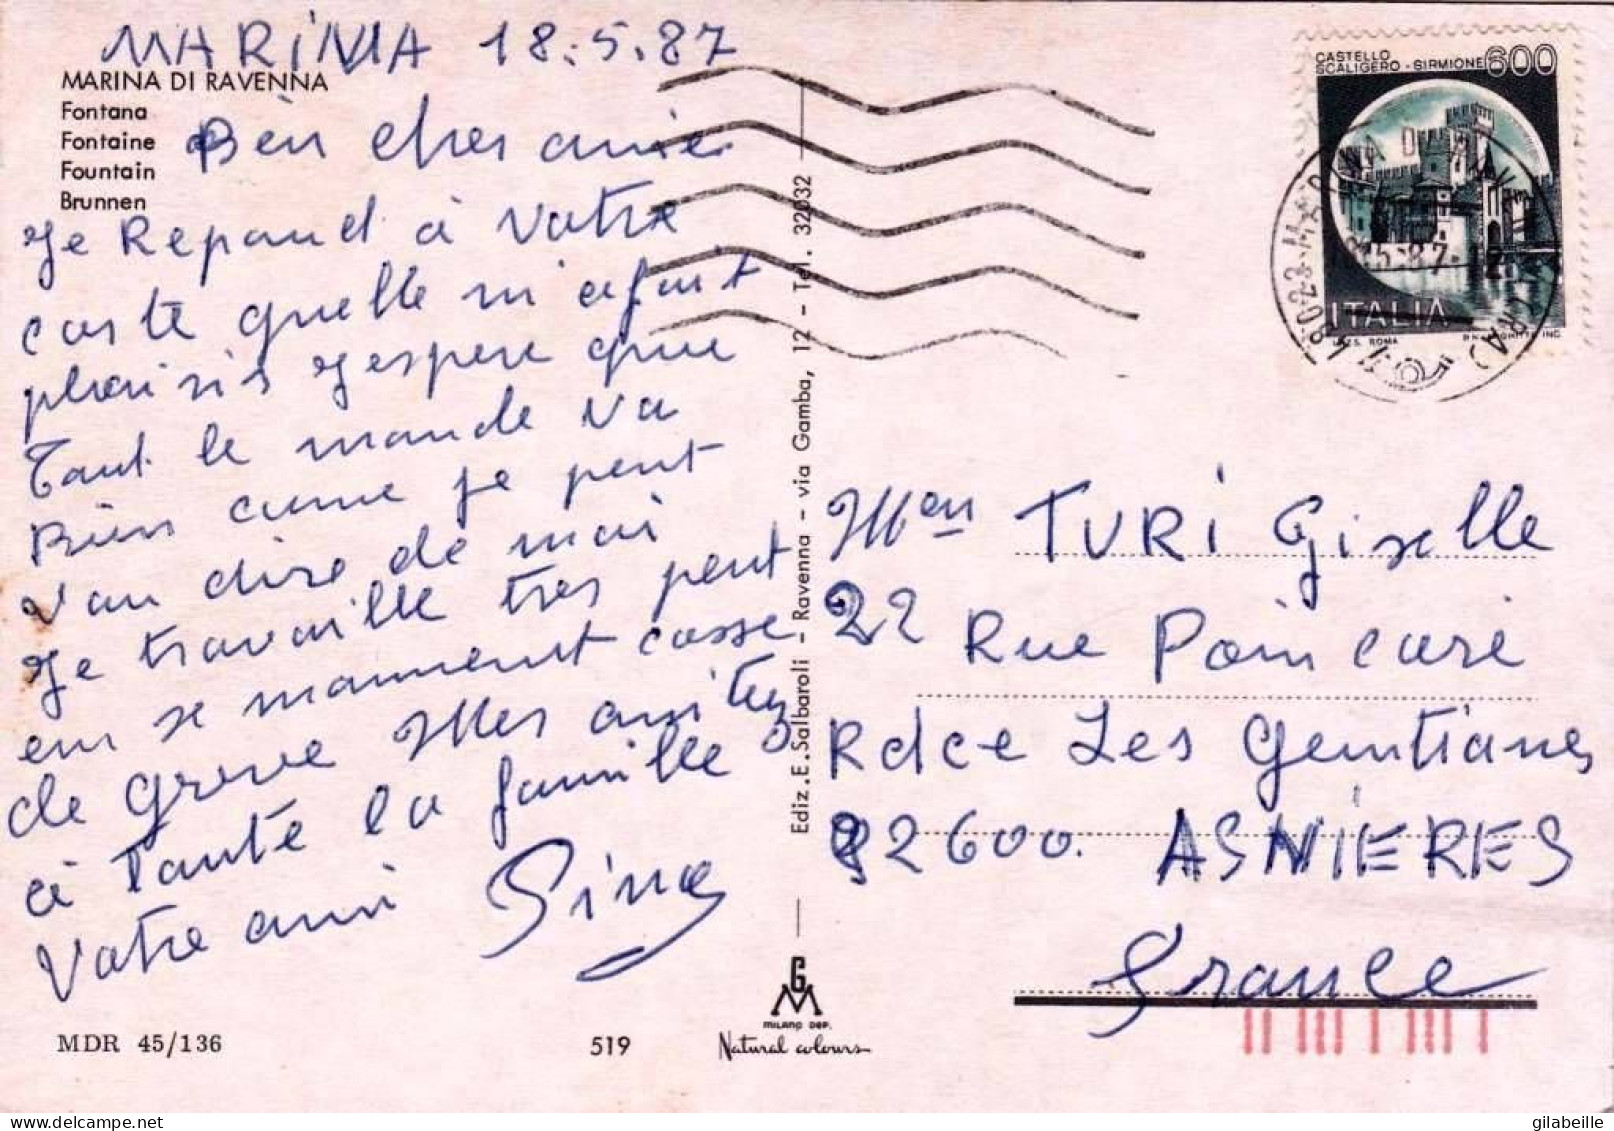 MARiNA 18.5.87
MARINA DI RAVENNA
Fontana
Fontaine
Fountain
Brunnen
Bèin cher amie
Je Repand à votre
carte quelle m'a fait
plaisir j'espere que
Tout le monde va
Bien came je peut
vau dire de moi
Je travaille tres peut
em se mament casse
de greve Mes amitez
à Tante la famille
Votre ami Pino
MDR 45/136
519
Ediz. E. Salbaroli - Ravenna - via Gamba, 12 - Tel. 32032
GM
MILANO DEP.
Natural colours
CASTELLO
SCALIGERO - SIRMIONE 600
ITALIA
ROMA
48023 MARINA DI RAVENNA (RA)
5-87-12
Men TURi Giselle
22 Rue Poincare
Rdce Les Gentianes
92600. ASNiERES
France
gilabeille